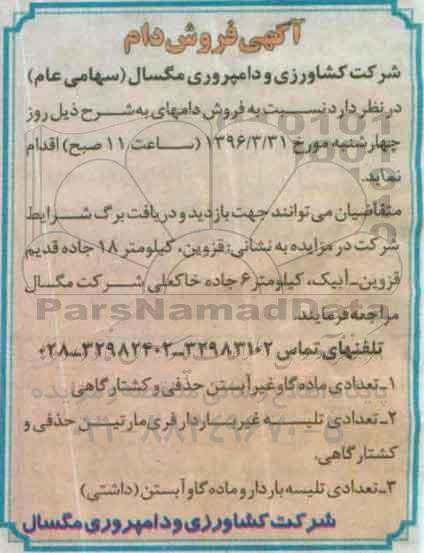 آگهی فروش دام
شرکت کشاورزی و دامپروری مگسال (سهامی عام)
در نظر دارد نسبت به فروش دامهای به شرح ذیل روز
چهارشنبه مورخ ۱۳۹۶/۳/۳۱ (ساعت ۱۱ صبح) اقدام
نماید.
متقاضیان می‌توانند جهت بازدید و دریافت برگ شرایط
شرکت در مزایده به نشانی: قزوین، کیلومتر ۱۸ جاده قدیم
قزوین-آبیک، کیلومتر ۶ جاده خاکعلی شرکت مگسال
مراجعه فرمایند.
ParsNamadData
تلفنهای تماس ۳۲۹۸۳۱۰۲-۳۲۹۸۲۴۰۲-۰۲۸
۱-تعدادی ماده گاو غیر آبستن حذفی و کشتارگاهی
۲-تعدادی تلیسه غیر باردار فری مارتین حذفی و
کشتارگاهی.
۳-تعدادی تلیسه باردار و ماده گاو آبستن (داشتی)
شرکت کشاورزی و دامپروری مگسال